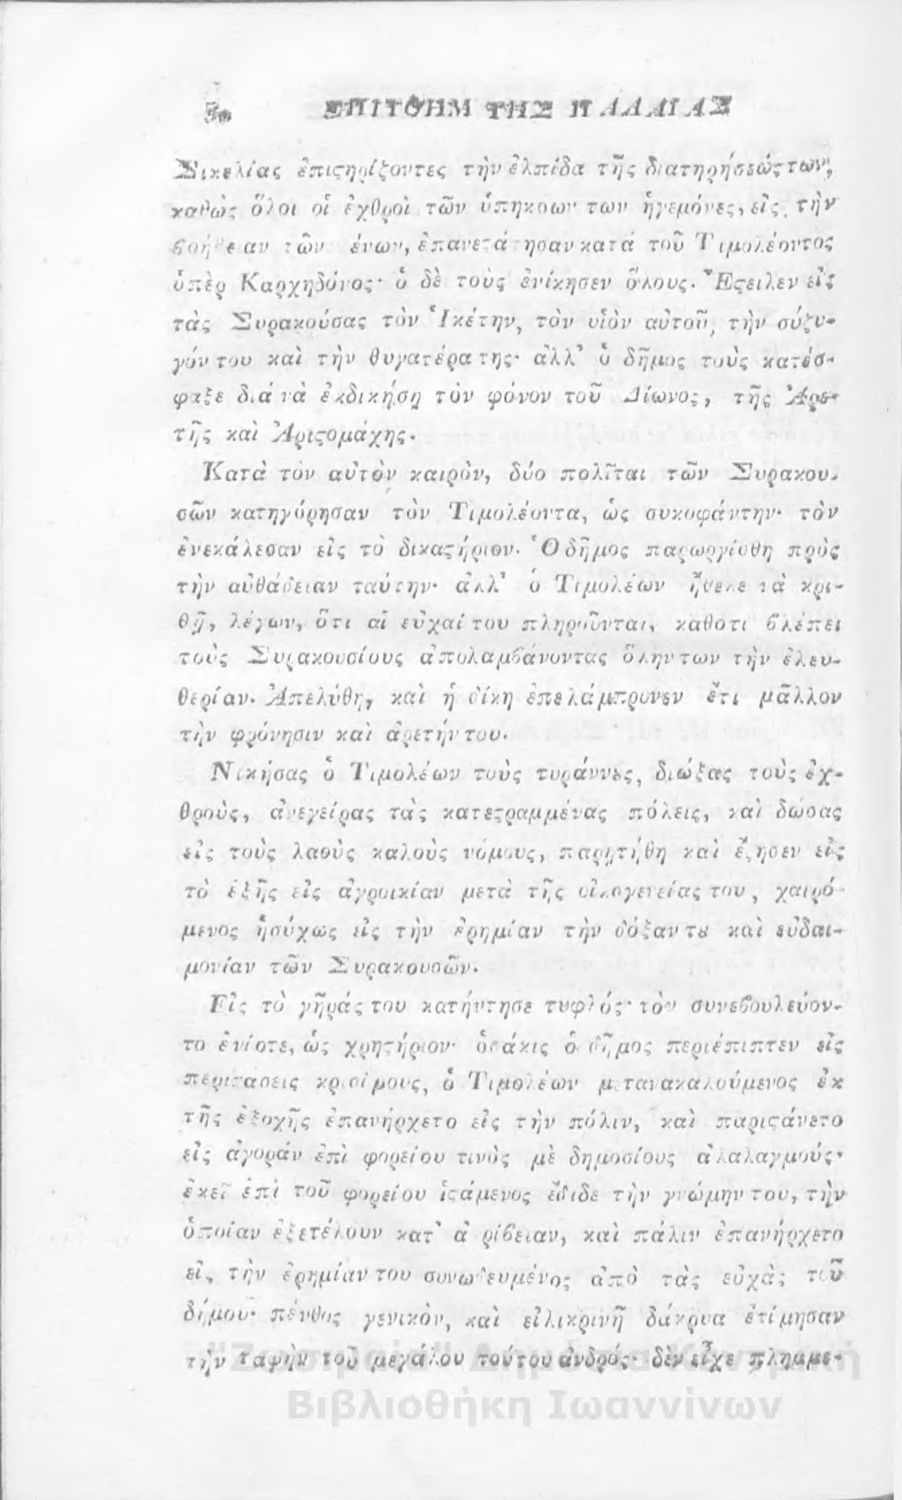 ΕΠΙΤΟΗΜ ΤΗΣ ΠΑΛΑΙΑΣ
Σικελίας ἐπιςηρίζοντες τὴν ἐλπίδα τῆς διατηρήσεώς των,
καθὼς ὅλοι οἱ ἐχθροὶ τῶν ὑπηκοων των ἡγεμόνες, εἰς τὴν
βοήθειαν τῶν ἐπανεςάτησαν κατὰ τοῦ Τιμολέοντος
ὑπὲρ Καρχηδόνος· ὁ δὲ τοὺς ἐνίκησεν ὅλους. Ἔςειλεν εἰς
τὰς Συρακούσας τὸν Ἱκέτην, τὸν υἱὸν αὐτοῦ, τὴν σύζυ-
γόν του καὶ τὴν θυγατέρα της· ἀλλ' ὁ δῆμος τοὺς κατέσ-
φαξε διὰ νὰ ἐκδικήσῃ τὸν φόνον τοῦ Δίωνος, τῆς Ἀρε-
τῆς καὶ Ἀριςομάχης.
Κατὰ τὸν αὐτὸν καιρὸν, δύο πολῖται τῶν Συρακου-
σῶν κατηγόρησαν τὸν Τιμολέοντα, ὡς συκοφάντην· τὸν
ἐνεκάλεσαν εἰς τὸ δικαςήριον. Ὁ δῆμος παρωργίσθη πρὸς
τὴν αὐθάδειαν ταύτην· ἀλλ' ὁ Τιμολέων ἤθελε νὰ κρι-
θῇ, λέγων, ὅτι αἱ εὐχαί του πληροῦνται, καθοτι βλέπει
τοὺς Συρακουσίους ἀπολαμβάνοντας ὅλην των τὴν ἐλευ-
θερίαν. Ἀπελύθη, καὶ ἡ δίκη ἐπελάμπρυνεν ἔτι μᾶλλον
τὴν φρόνησιν καὶ ἀρετήν του.
Νικήσας ὁ Τιμολέων τοὺς τυράννȣς, διώξας τοὺς ἐχ-
θροὺς, ἀνεγείρας τὰς κατεςραμμένας πόλεις, καὶ δώσας
εἰς τοὺς λαοὺς καλοὺς νόμους, παρῃτήθη καὶ ἔζησεν εἰς
τὸ ἑξῆς εἰς ἀγροικίαν μετὰ τῆς οἰκογενείας του, χαιρό-
μενος ἡσύχως εἰς τὴν ἐρημίαν τὴν δόξαν τȣ καὶ εὐδαι-
μονίαν τῶν Συρακουσῶν.
Εἰς τὸ γῆράς του κατήντησε τυφλός· τὸν συνεβουλεύον-
το ἐνίοτε, ὡς χρηςήριον· ὁσάκις ὁ δῆμος περιέπιπτεν εἰς
περιςάσεις κρισίμους, ὁ Τιμολέων μετανακαλούμενος ἐκ
τῆς ἐξοχῆς ἐπανήρχετο εἰς τὴν πόλιν, καὶ παριςάνετο
εἰς ἀγορὰν ἐπὶ φορείου τινὸς μὲ δημοσίους ἀλαλαγμούς·
ἐκεῖ ἐπὶ τοῦ φορείου ἱςάμενος ἔδιδε τὴν γνώμην του, τὴν
ὁποίαν ἐξετέλουν κατ' ἀκρίβειαν, καὶ πάλιν ἐπανήρχετο
εἰς τὴν ἐρημίαν του συνωδευμένος ἀπὸ τὰς εὐχὰς τοῦ
δήμου· πένθος γενικὸν, καὶ εἰλικρινῆ δάκρυα ἐτίμησαν
τὴν ταφὴν τοῦ μεγάλου τούτου ἀνδρός· δὲν εἶχε πλημμε-
Βιβλιοθήκη Ιωαννίνων